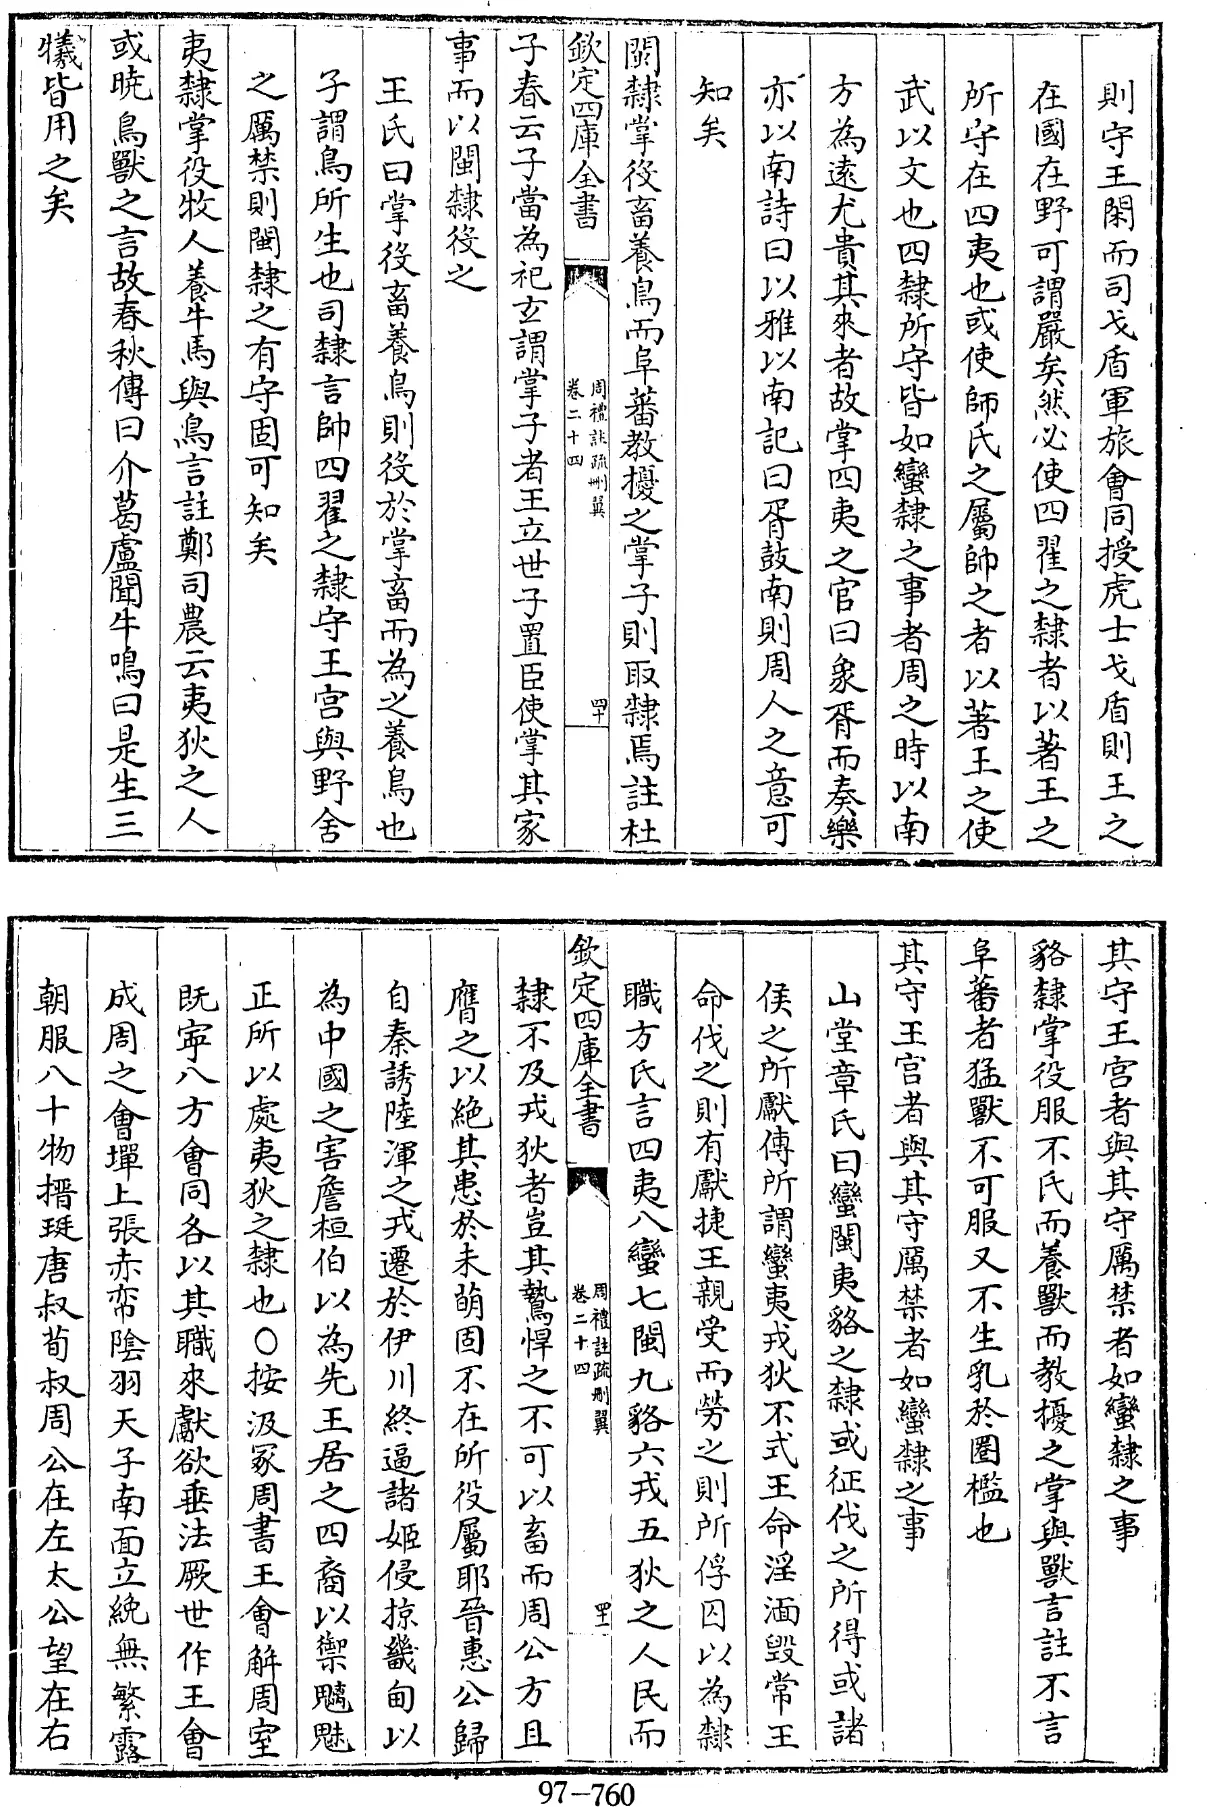 則守王閑而司戈盾軍旅會同授虎士戈盾則王之
在國在野可謂嚴矣然必使四翟之隸者以著王之
所守在四夷也或使師氏之屬帥之者以著王之使
武以文也四隸所守皆如蠻隸之事者周之時以南
方為遠尤貴其來者故掌四夷之官曰象胥而奏樂
亦以南詩曰以雅以南記曰胥鼓南則周人之意可
知矣
閩隸掌役畜養鳥而阜蕃教擾之掌子則取隸焉註杜
欽定四庫全書
周禮註疏刪翼
卷二十四
四十
子春云子當為祀玄謂掌子者王立世子置臣使掌其家
事而以閩隸役之
王氏曰掌役畜養鳥則役於掌畜而為之養鳥也
子謂鳥所生也司隸言帥四翟之隸守王宮與野舍
之厲禁則閩隸之有守固可知矣
夷隸掌役牧人養牛馬與鳥言註鄭司農云夷狄之人
或曉鳥獸之言故春秋傳曰介葛盧聞牛鳴曰是生三
犧皆用之矣
其守王宮者與其守厲禁者如蠻隸之事
貉隸掌役服不氏而養獸而教擾之掌與獸言註不言
阜蕃者猛獸不可服又不生乳於圈檻也
其守王宮者與其守厲禁者如蠻隸之事
山堂章氏曰蠻閩夷貉之隸或征伐之所得或諸
侯之所獻傳所謂蠻夷戎狄不式王命淫湎毀常王
命伐之則有獻捷王親受而勞之則所俘囚以為隸
職方氏言四夷八蠻七閩九貉六戎五狄之人民而
欽定四庫全書
周禮註疏刪翼
卷二十四
四十一
隸不及戎狄者豈其鷙悍之不可以畜而周公方且
膺之以絶其患於未萌固不在所役屬耶晉惠公歸
自秦誘陸渾之戎遷於伊川終逼諸姬侵掠畿甸以
為中國之害詹桓伯以為先王居之四裔以禦魑魅
正所以處夷狄之隸也○按汲冢周書王會解周室
既寧八方會同各以其職來獻欲垂法厥世作王會
成周之會墠上張赤帟陰羽天子南面立絻無繁露
朝服八十物搢珽唐叔荀叔周公在左太公望在右
97-760